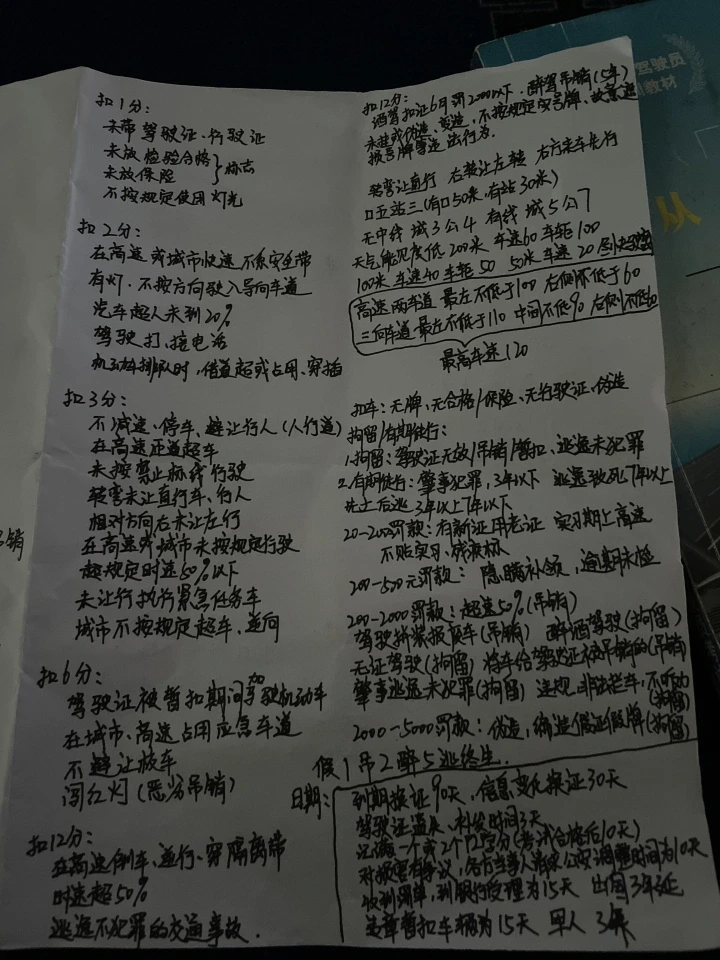 扣1分：
未带驾驶证、行驶证
未放检验合格
未放保险 } 标志
不按规定使用灯光
扣2分：
在高速或城市快速不系安全带
有灯、不按方向驶入导向车道
汽车超人未到20%
驾驶打、接电话
机动车排队时，借道超或占用、穿插
扣3分：
不减速、停车、避让行人（人行道）
在高速匝道超车
未按禁止标线行驶
转弯未让直行车、行人
相对方向右未让左行
在高速或城市未按规定行驶
超规定时速50%以下
未让行执行紧急任务车
城市不按规定超车、逆向
扣6分：
驾驶证被暂扣期间驾驶机动车
在城市、高速占用应急车道
不避让校车
闯红灯（恶劣吊销）
扣12分：
在高速倒车、逆行、穿隔离带
时速超50%
逃逸不犯罪的交通事故.
扣12分：
酒驾扣证6月罚2000以下. 醉驾吊销（5年）
未挂或伪造、变造，不按规定安号牌、故意遮
法行为.
转弯让直行 右转让左转 右方来车先行
口五站三（有口50米，有站30米）
无中线 城3公4 有线 城5公7
天气能见度低 200米 车速60车距100
100米 车速40车距50 50米 车速20
高速两车道 最左不低于100 右侧不低于60
三向车道 最左不低于110 中间不低90 右侧不低60
最高车速120
扣车：无牌、无合格/保险、无行驶证、伪造
拘留/有期徒行：
1.拘留：驾驶证无效/吊销/暂扣、逃逸未犯罪
2.有期徒行：肇事犯罪，3年以下 逃逸致死7年以上
后逃 3年以上7年以下
20-200罚款：有新证用老证 实习期上高速
不贴实习、残疾标
200-500元罚款： 隐瞒补领，逾期未检
200-2000罚款：超速50%（吊销）
驾驶拼装报废车（吊销） 醉酒驾驶（拘留）
无证驾驶（拘留） 将车给驾驶证被吊销的（吊销）
肇事逃逸未犯罪（拘留） 违规 非法拦车，不听劝（拘留）
2000-5000罚款：伪造，编造假证假牌（拘留）
假1吊2醉5逃终生.
日期：
到期换证90天，信息变化换证30天
驾驶证遗失、补发时间3天
记满一个或2个12学分（考试合格后10天）
对损害有争议，各方当事人请求公安调解时间为10天
收到罚单，到银行受理为15天 出国3年延
违章暂扣车辆为15天 军人3年
驾驶员
教材
从
吊销